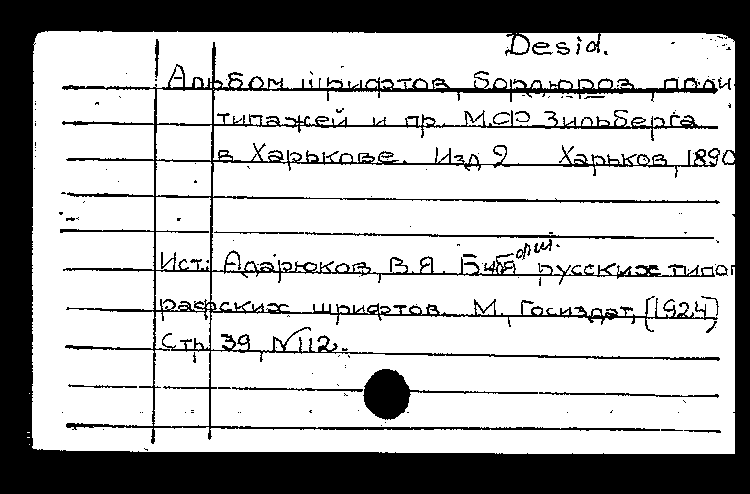 Desid.
Альбом шрифтов, бордюров, поли-
типажей и пр. М.Ф Зильберга
в Харькове. Изд 2 Харьков, 1890
Ист.: Адарюков, В.Я. Библ русских типог
рафских шрифтов. М., Госиздат, [1924]
Стр 39, №112.